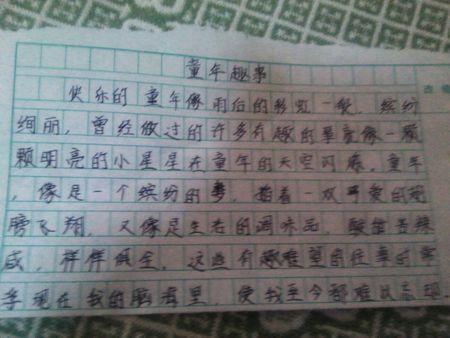 童年趣事
快乐的童年像雨后的彩虹一般，缤纷
绚丽，曾经做过的许多有趣的事亮像一颗
颗明亮的小星星在童年的天空闪烁，童年
，像是一个缤纷的梦，拍着一双可爱的翅
膀飞翔，又像是生活的调味品，酸甜苦辣
咸，样样俱全，这些有趣难望的往事的常
常现在我的脑海里，使我至今都难以忘却。